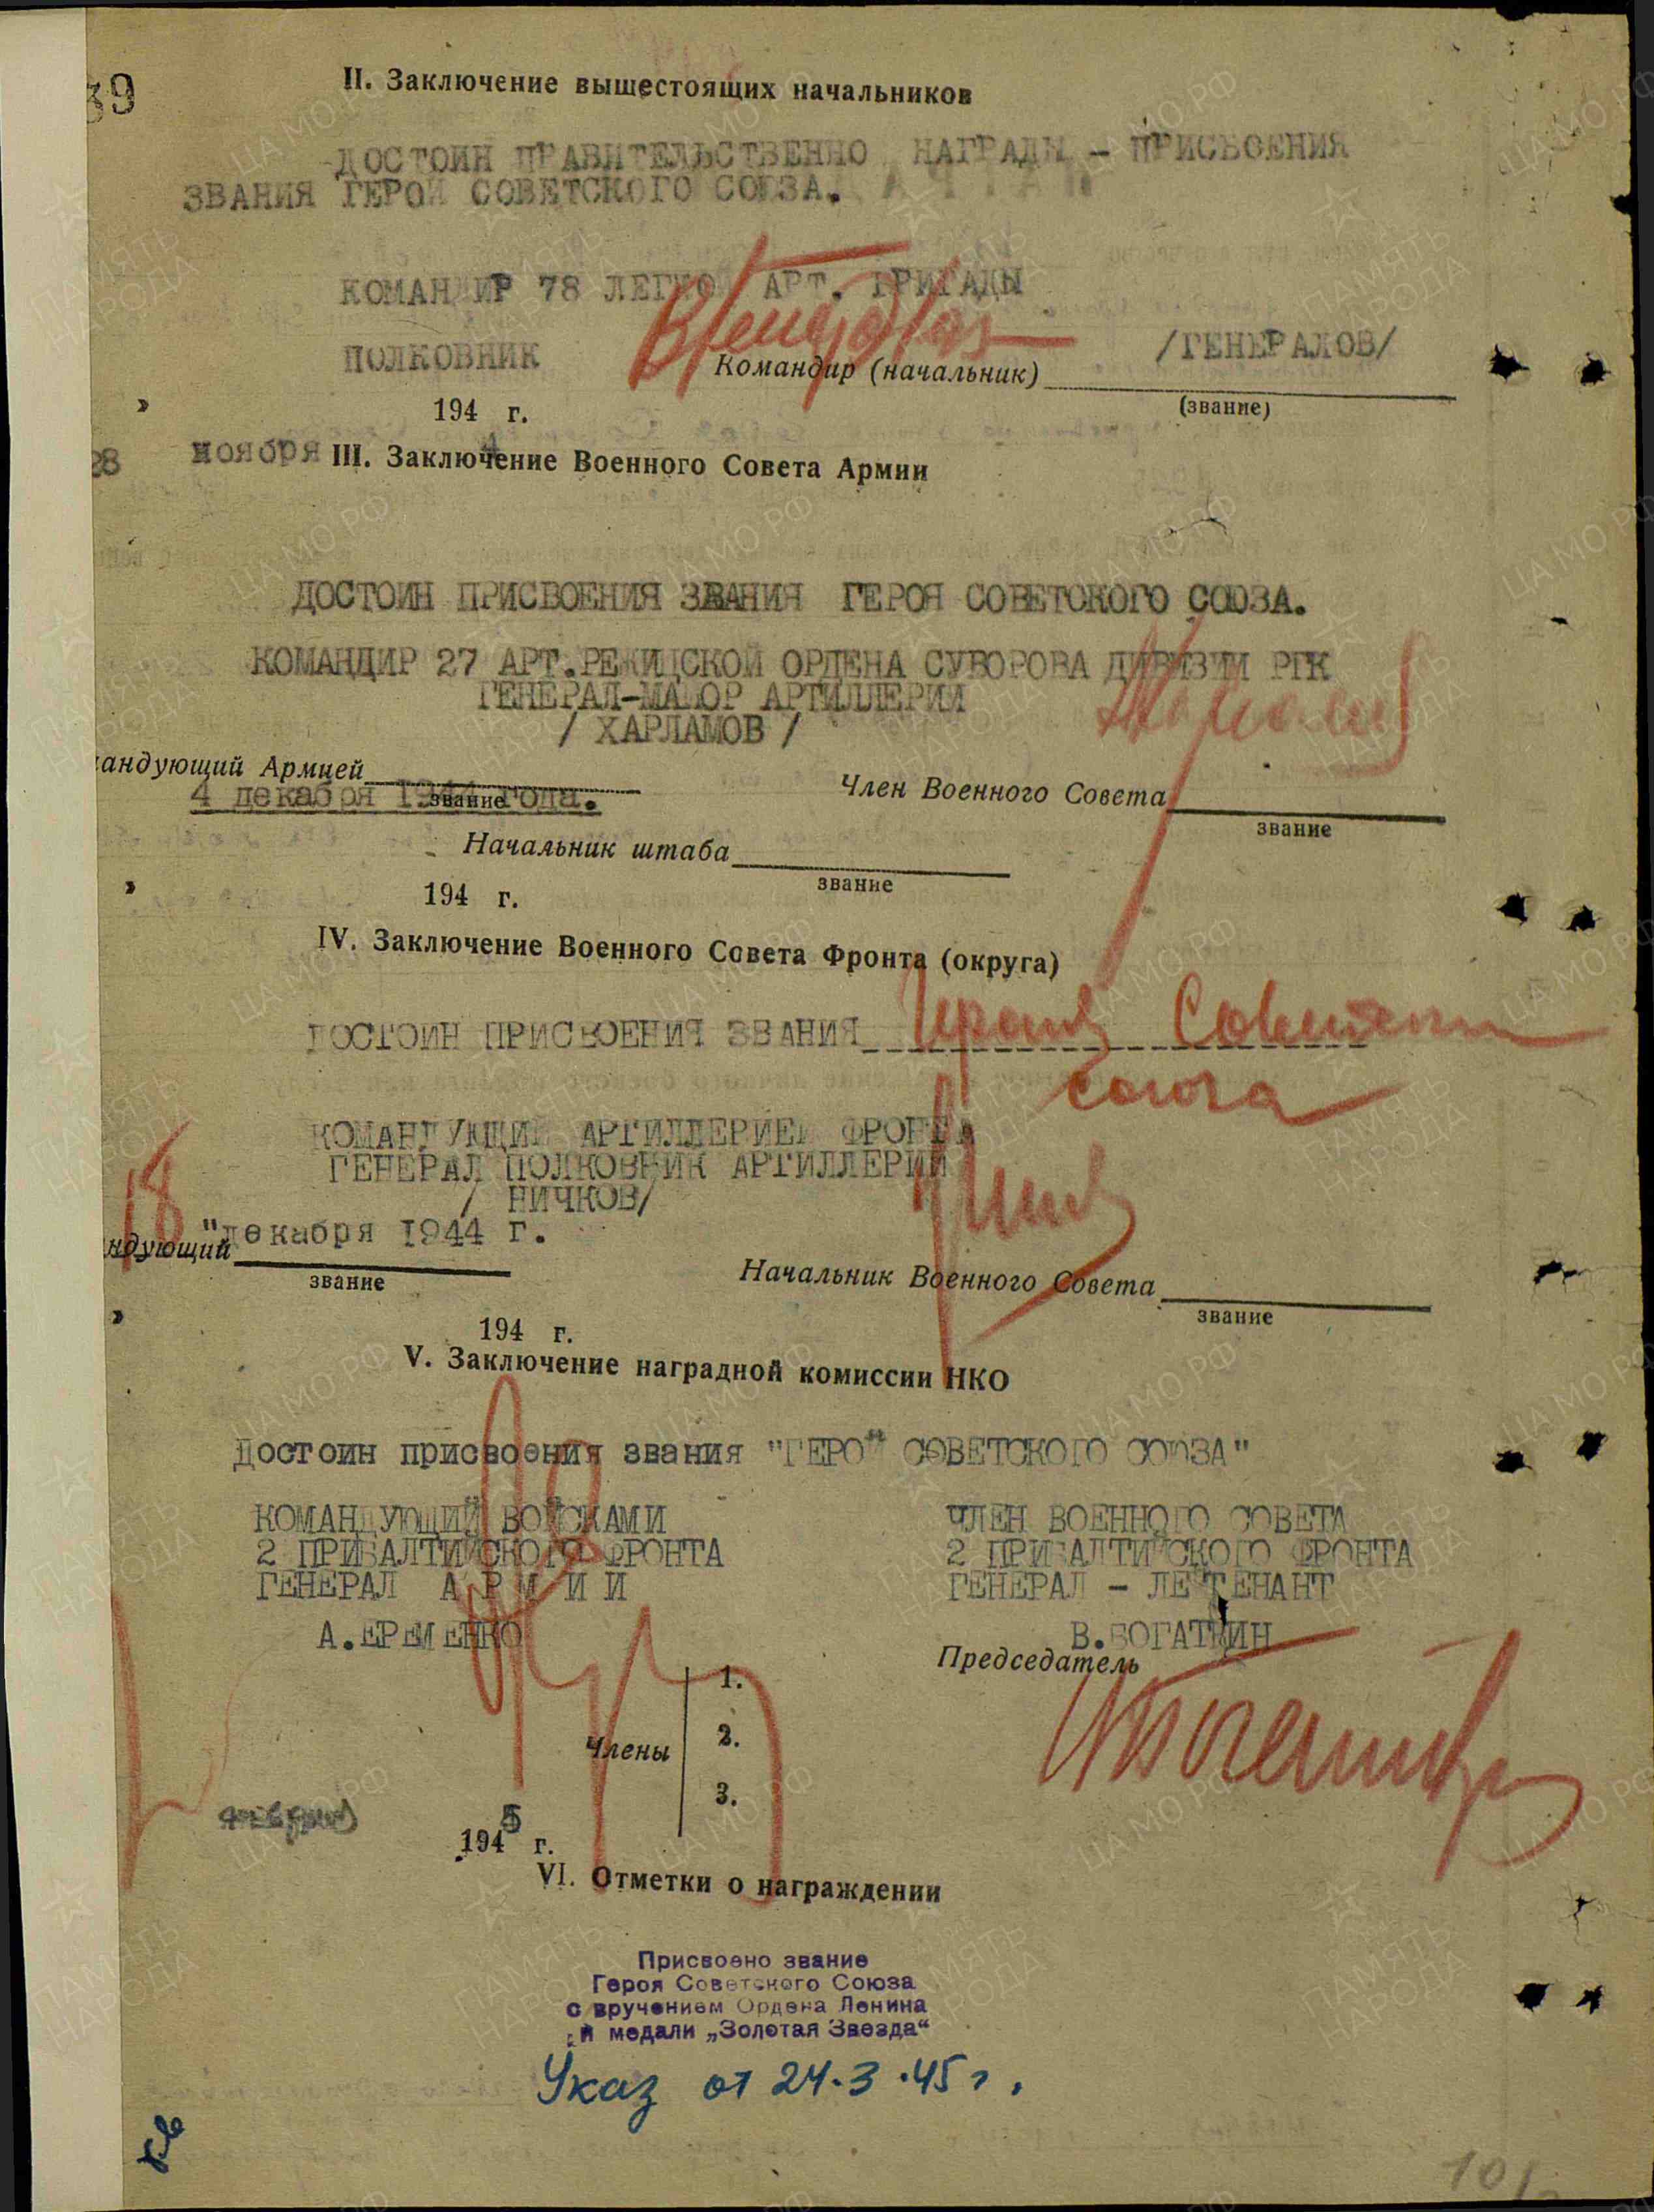 39
II. Заключение вышестоящих начальников
ДОСТОИН ПРАВИТЕЛЬСТВЕННО НАГРАДЫ – ПРИСВОЕНИЯ
ЗВАНИЯ ГЕРОЙ СОВЕТСКОГО СОЮЗА.
КОМАНДИР 78 ЛЕГКОЙ АРТ. БРИГАДЫ
ПОЛКОВНИК /ГЕНЕРАЛОВ/
Командир (начальник)
(звание)
194 г.
28 ноября 4
III. Заключение Военного Совета Армии
ДОСТОИН ПРИСВОЕНИЯ ЗВАНИЯ ГЕРОЯ СОВЕТСКОГО СОЮЗА.
КОМАНДИР 27 АРТ.РЕЖИЦСКОЙ ОРДЕНА СУВОРОВА ДИВИЗИИ РГК
ГЕНЕРАЛ-МАЙОР АРТИЛЛЕРИИ
/ ХАРЛАМОВ /
андующий Армией
звание
4 декабря 1944 года.
Член Военного Совета
звание
Начальник штаба
звание
194 г.
IV. Заключение Военного Совета Фронта (округа)
ДОСТОИН ПРИСВОЕНИЯ ЗВАНИЯ Героя Советского
Союза
КОМАНДУЮЩИЙ АРТИЛЛЕРИЕЙ ФРОНТА
ГЕНЕРАЛ ПОЛКОВНИК АРТИЛЛЕРИИ
/ НИЧКОВ/
18 "декабря 1944 г.
ндующий
звание
Начальник Военного Совета
звание
194 г.
V. Заключение наградной комиссии НКО
Достоин присвоения звания "ГЕРОЙ СОВЕТСКОГО СОЮЗА"
КОМАНДУЮЩИЙ ВОЙСКАМИ
2 ПРИБАЛТИЙСКОГО ФРОНТА
ГЕНЕРАЛ АРМИИ
А.ЕРЕМЕНКО
ЧЛЕН ВОЕННОГО СОВЕТА
2 ПРИБАЛТИЙСКОГО ФРОНТА
ГЕНЕРАЛ – ЛЕЙТЕНАНТ
В.БОГАТКИН
Председатель
Члены
1.
2.
3.
февраля 1945 г.
VI. Отметки о награждении
Присвоено звание
Героя Советского Союза
с вручением Ордена Ленина
и медали „Золотая Звезда“
Указ от 24.3.45 г.
ПАМЯТЬ НАРОДА
ЦА МО РФ